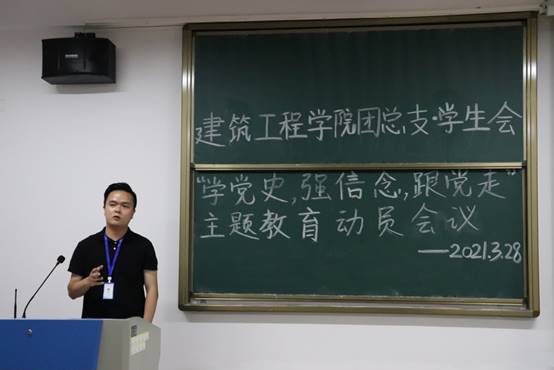 建筑工程学院团总支·学生会
“学党史,强信念,跟党走”
主题教育动员会议
——2021.3.28